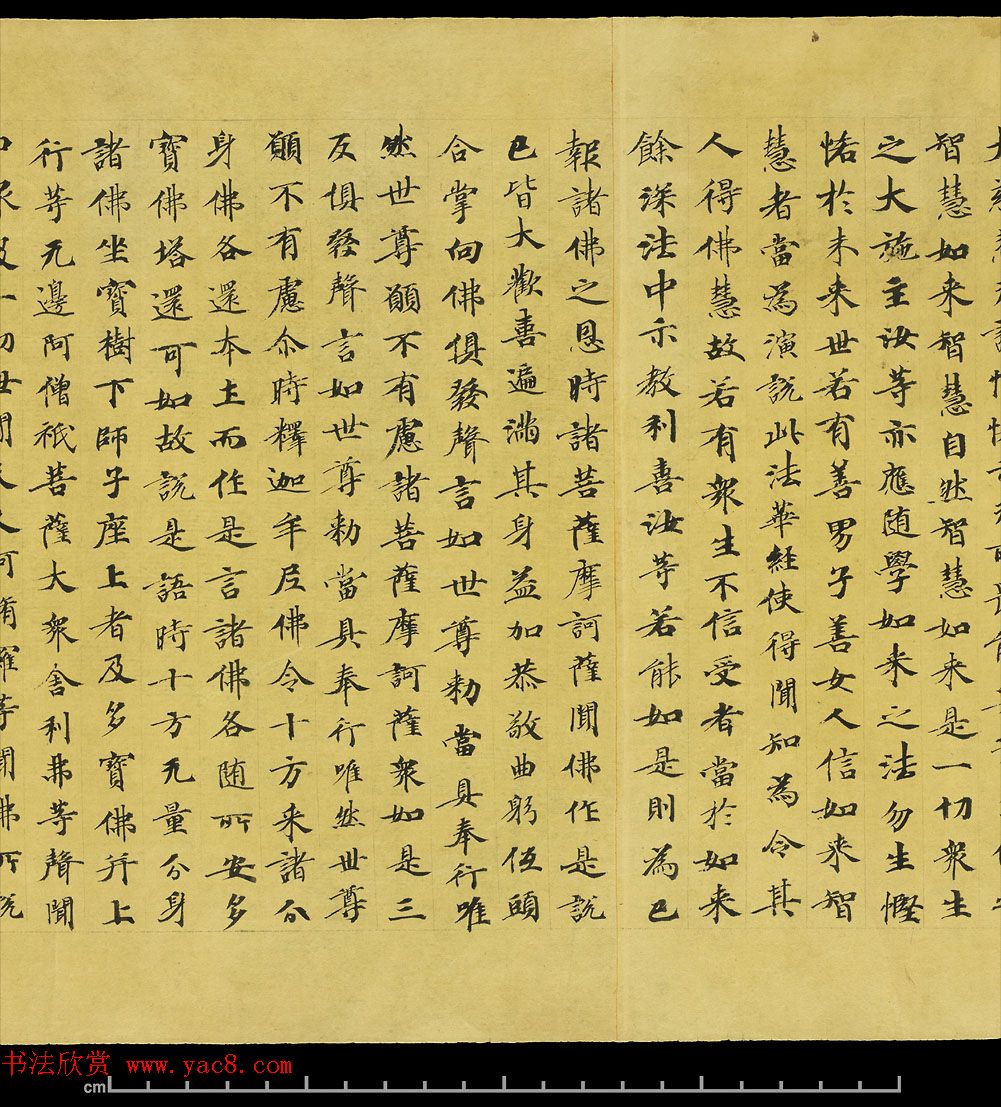 智慧如来智慧自然智慧如来是一切衆生
之大施主汝等亦應随學如来之法勿生慳
悋於未来世若有善男子善女人信如来智
慧者當為演說此法華経使得聞知為令其
人得佛慧故若有衆生不信受者當於如来
餘深法中示教利喜汝等若能如是則為已
報諸佛之恩時諸菩薩摩訶薩聞佛作是說
已皆大歡喜遍滿其身益加恭敬曲躬伍頭
合掌向佛俱發聲言如世尊勅當具奉行唯
然世尊願不有慮諸菩薩摩訶薩衆如是三
反俱發聲言如世尊勅當具奉行唯然世尊
願不有慮尒時釋迦牟尼佛令十方来諸分
身佛各還本土而作是言諸佛各随所安多
寶佛塔還可如故說是語時十方无量分身
諸佛坐寶樹下師子座上者及多寶佛并上
行等无邊阿僧祇菩薩大衆舍利弗等聲聞
四衆及一切世間天人阿脩羅等聞佛所說
书法欣赏 www.yac8.com
cm